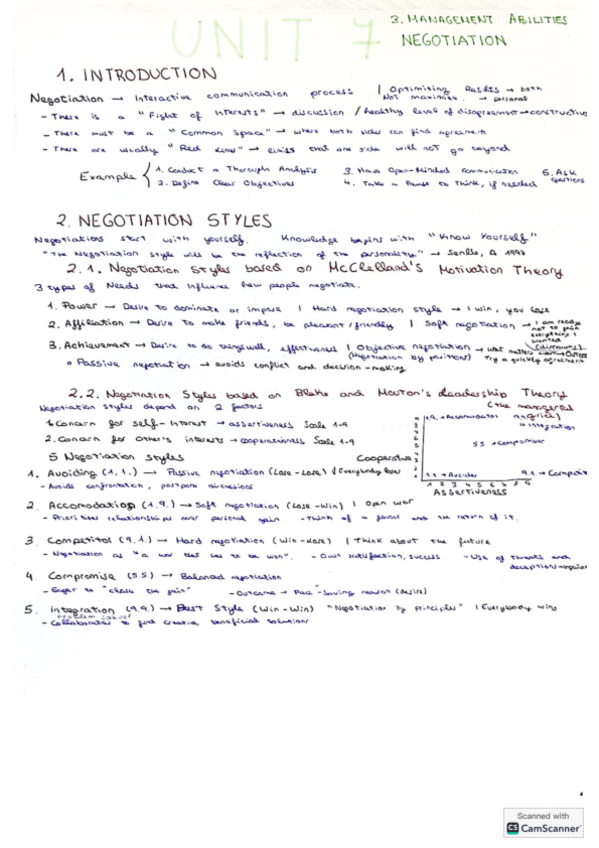 UNIT 7
3. MANAGEMENT ABILITIES
NEGOTIATION
1. INTRODUCTION
Negotiation → Interactive communication process | Optimising Results → both
Not maximise. → personal
- There is a "Fight of Interests" → discussion / healthy level of disagreement → constructive
- There must be a "Common Space" → where both sides can find agreement
- There are usually "Red Lines" → limits that one side will not go beyond
Example { 1. Conduct a Thorough Analysis 3. Have Open-Minded communication 5. Ask questions
2. Define Clear Objectives 4. Take a Pause to Think, if needed
2. NEGOTIATION STYLES
Negotiations start with yourself. Knowledge begins with "Know Yourself"
"The Negotiation style will be the reflection of the personality" →
2.1. Negotiation Styles based on McClelland's Motivation Theory
3 types of Needs that influence how people negotiate.
1. Power → Desire to dominate or impose | Hard negotiation style → I win, you lose
2. Affiliation → Desire to make friends, be pleasant/friendly | Soft negotiation → I am ready not to gain everything I wanted
3. Achievement → Desire to do things well, effectiveness | Objective negotiation →
(Negotiation by positions) Try a quickly agreement
Passive negotiation → avoids conflict and decision-making
2.2. Negotiation Styles based on Blake and Mouton's Leadership Theory
(the managerial grid)
Negotiation styles depend on 2 factors
1. Concern for self-Interest → assertiveness Scale 1-9
2. Concern for other's interests → cooperativeness Scale 1-9
5 Negotiation styles
Cooperative
1.9. → Accomodator
→ Integration
5.5 → Compromiser
1.1 → Avoider
9.1 →
1 2 3 4 5 6 7 8 9
Assertiveness
1. Avoiding (1,1.) → Passive negotiation (Lose-Lose) | Everybody loses
- Avoids confrontation, postpone discussions
2. Accomodation (1.9.) → Soft negotiation (Lose-Win) | Open war
- Prioritizes relationships over personal gain - Think of a favour and the return of it.
3. Competitor (9,1.) → Hard negotiation (Win-Lose) | Think about the future
- Negotiation as "a war that has to be won". - Own satisfaction, success - Use of threats and
4. Compromise (5.5) → Balanced negotiation
- Eager to "close the gain" - Outcome → Face-Saving
5. Integration (9.9) → Best Style (Win-Win) "Negotiation by Principles" | Everybody wins
- Collaborates to find creative beneficial solutions
Scanned with
CS CamScanner